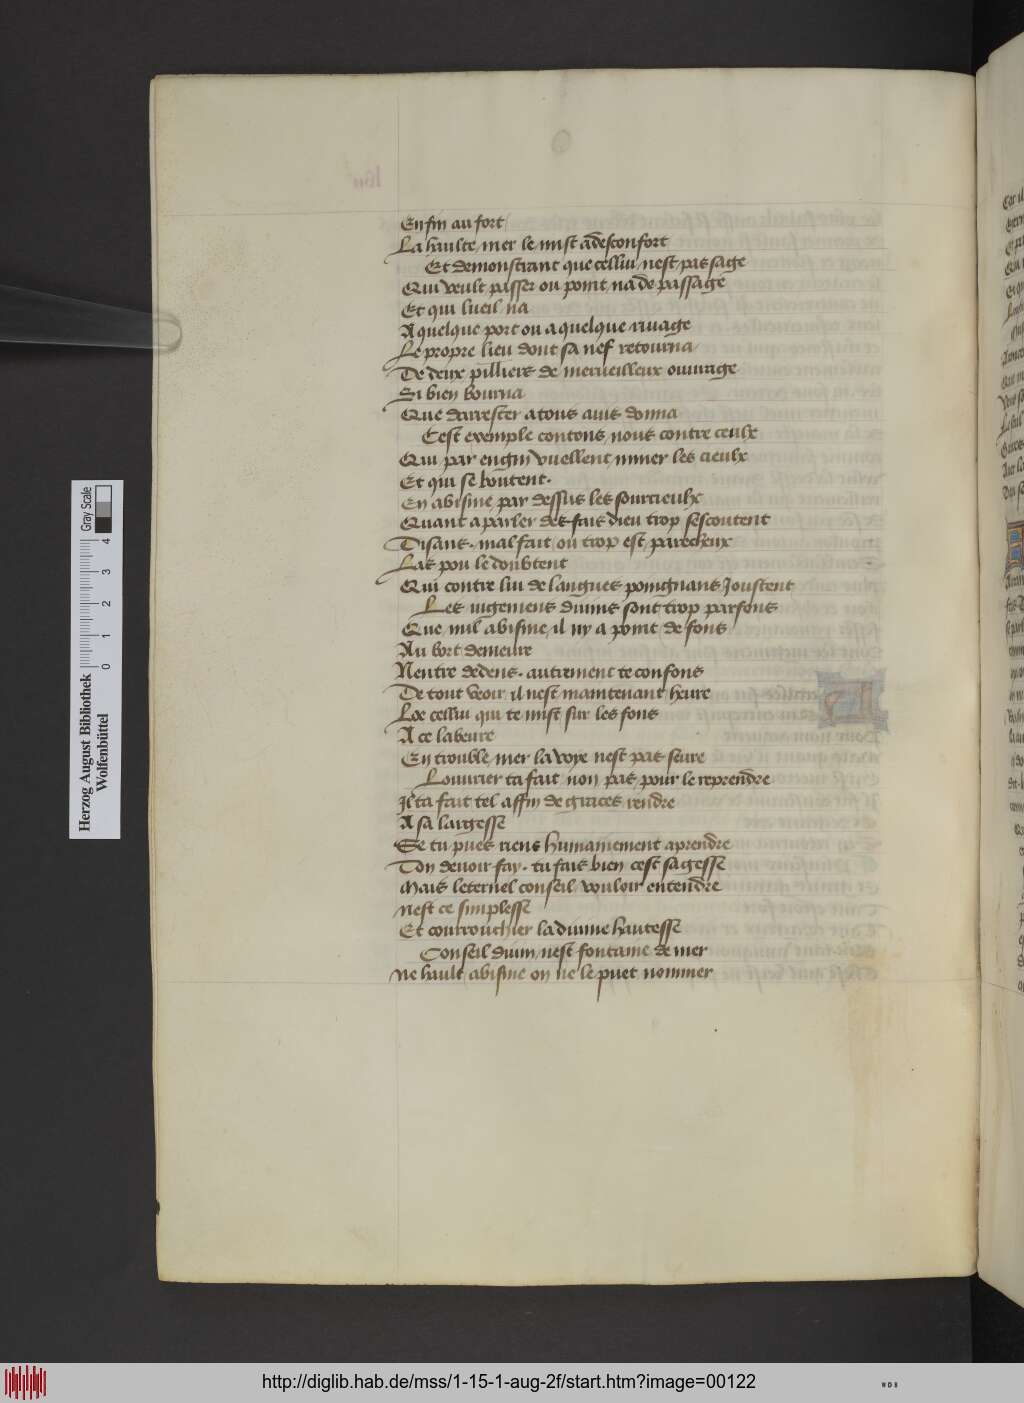 En fin au fort
La haulte mer le mist a desconfort
Et demonstrant que cellui nest pas sage
Qui veult passer ou point na de passage
Et qui lueil na
A quelque port ou a quelque rivage
Le propre lieu dont sa nef retourna
De deux pilliers de merueilleux ouurage
Si bien bourna
Que darrester a tous auis donna
Cest exemple contons nous contre ceulx
Qui par engin vuellent miner les cieulx
Et qui se boutent.
En abisme par dessus les sourcieulx
Quant a parler des fais dieu trop sescoutent
Disans. mal fait ou trop est parecheux
Las pou le doubtent
Qui contre lui de langues poingnans Joustent
Les iugemens diuins sont trop parfons
Que nul abisme il ny a point de fons
Au bort demeure
Nentre dedens. autrement te confons
De tout veoir il nest maintenant heure
Loe cellui qui te mist sur les fons
A ce labeure
En trouble mer la voye nest pas seure
Louurier ta fait non pas pour le reprendre
Il ta fait tel affin de graces rendre
A sa largesse
Se tu pues riens humainement aprendre
Ton deuoir fay. tu fais bien cest sagesse
Mais leternel conseil vouloir entendre
nest ce simplesse
Et courrouchier la diuine hautesse
Conseil diuin nest fontaine de mer
Ne hault abisme on ne le puet nommer
Herzog August Bibliothek
Wolfenbüttel
0 1 2 3 4
Gray Scale
http://diglib.hab.de/mss/1-15-1-aug-2f/start.htm?image=00122